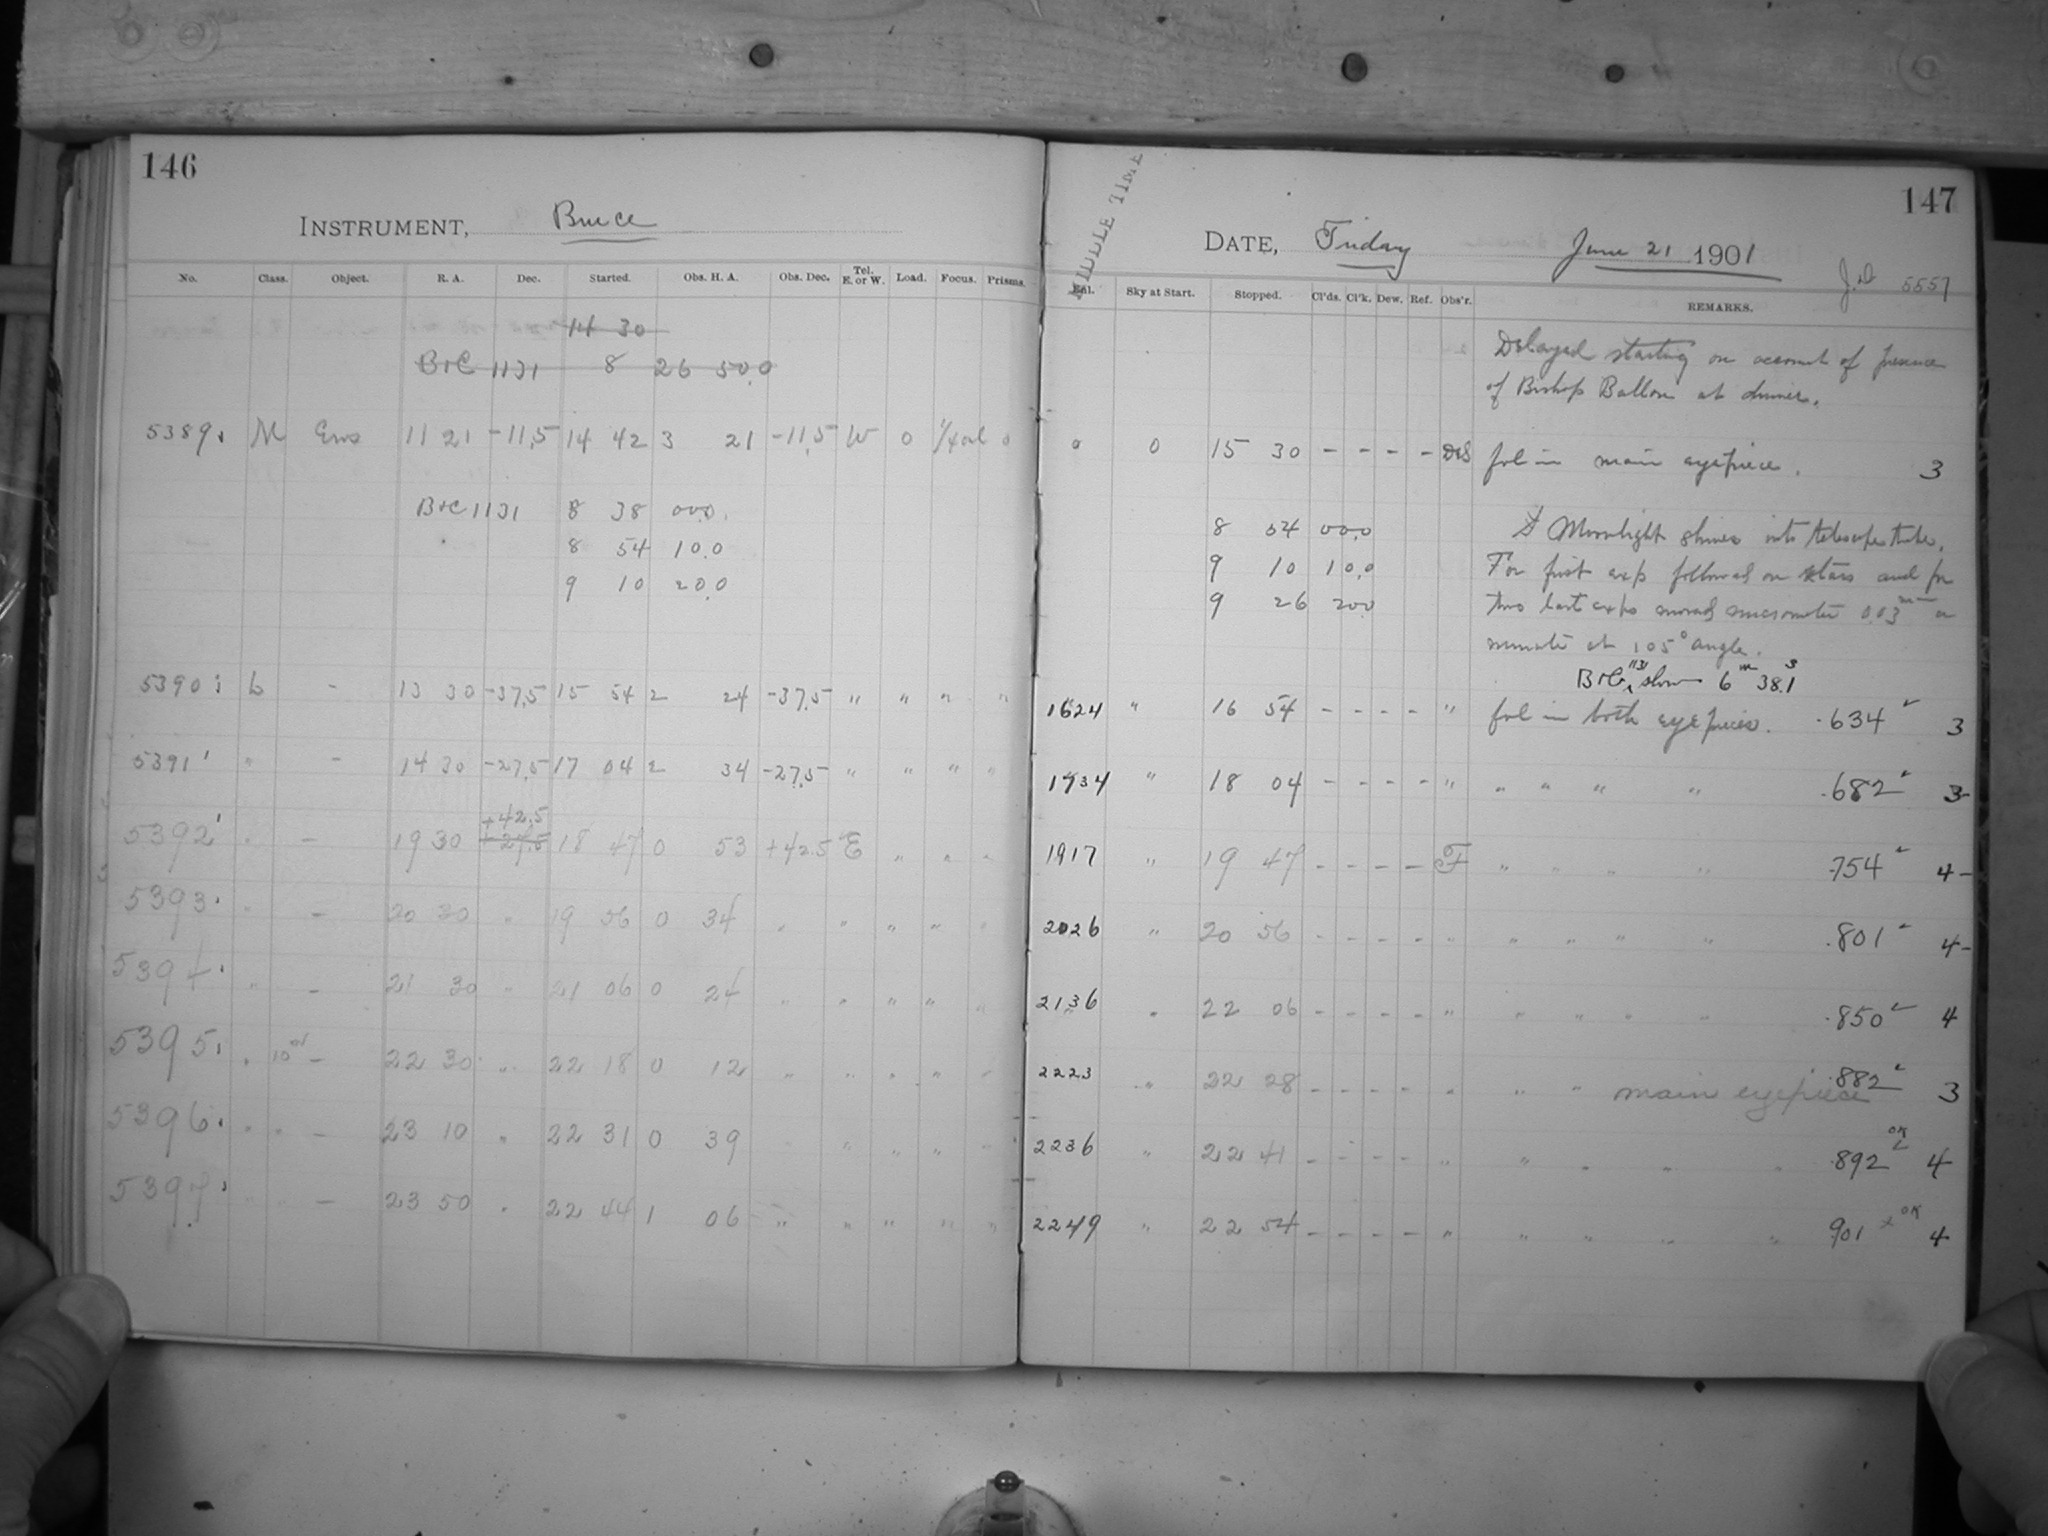 146
INSTRUMENT, Bruce
No. Class. Object. R. A. Dec. Started. Obs. H. A. Obs. Dec. Tel. E. or W. Load. Focus. Prisms.
14 30
B+C 1131 8 26 50.0
5389 M Eros 11 21 -11.5 14 42 3 21 -11.5 W 0 0
B+C 1131 8 38 00.0
8 54 10.0
9 10 20.0
5390 L - 13 30 -37.5 15 54 2 24 -37.5 " " " "
5391 " - 14 30 -27.5 17 04 2 34 -27.5 " " " "
+42.5
5392 " - 19 30 -27.5 18 47 0 53 +42.5 E " " "
5393 " - 20 30 " 19 56 0 34 " " " " "
5394 " - 21 30 " 21 06 0 24 " " " " "
5395 " 10m - 22 30 " 22 18 0 12 " " " " "
5396 " " - 23 10 " 22 31 0 39 " " " "
5397 " " - 23 50 " 22 44 1 06 " " " " "
MIDDLE TIME
147
DATE, Friday June 21 1901
J.D 5557
Sky at Start. Stopped. Cl'ds. Cl'k. Dew. Ref. Obs'r. REMARKS.
Delayed starting on account of presence
of Bishop Ballon at dinner.
0 0 15 30 - - - - DeS fol in main eyepiece. 3
8 54 00.0 Moonlight shines into telescope tube.
9 10 10.0 For first exp followed on stars and for
9 26 20.0 two last exps moved micrometer 0.03 mm a
minute at 105° angle.
B+C 1131 slow 6m 38.1s
1624 " 16 54 - - - - " fol in both eyepieces. .634 3
1734 " 18 04 - - - - " " " " " .682 3-
1917 " 19 47 - - - - F " " " " .754 4-
2026 " 20 56 - - - - " " " " " .801 4-
2136 " 22 06 - - - - " " " " " .850 4
2223 " 22 28 - - - - " " " main eyepiece .882 3
2236 " 22 41 - - - - " " " " " .892 OK 4
2249 " 22 54 - - - - " " " " " .901 OK 4